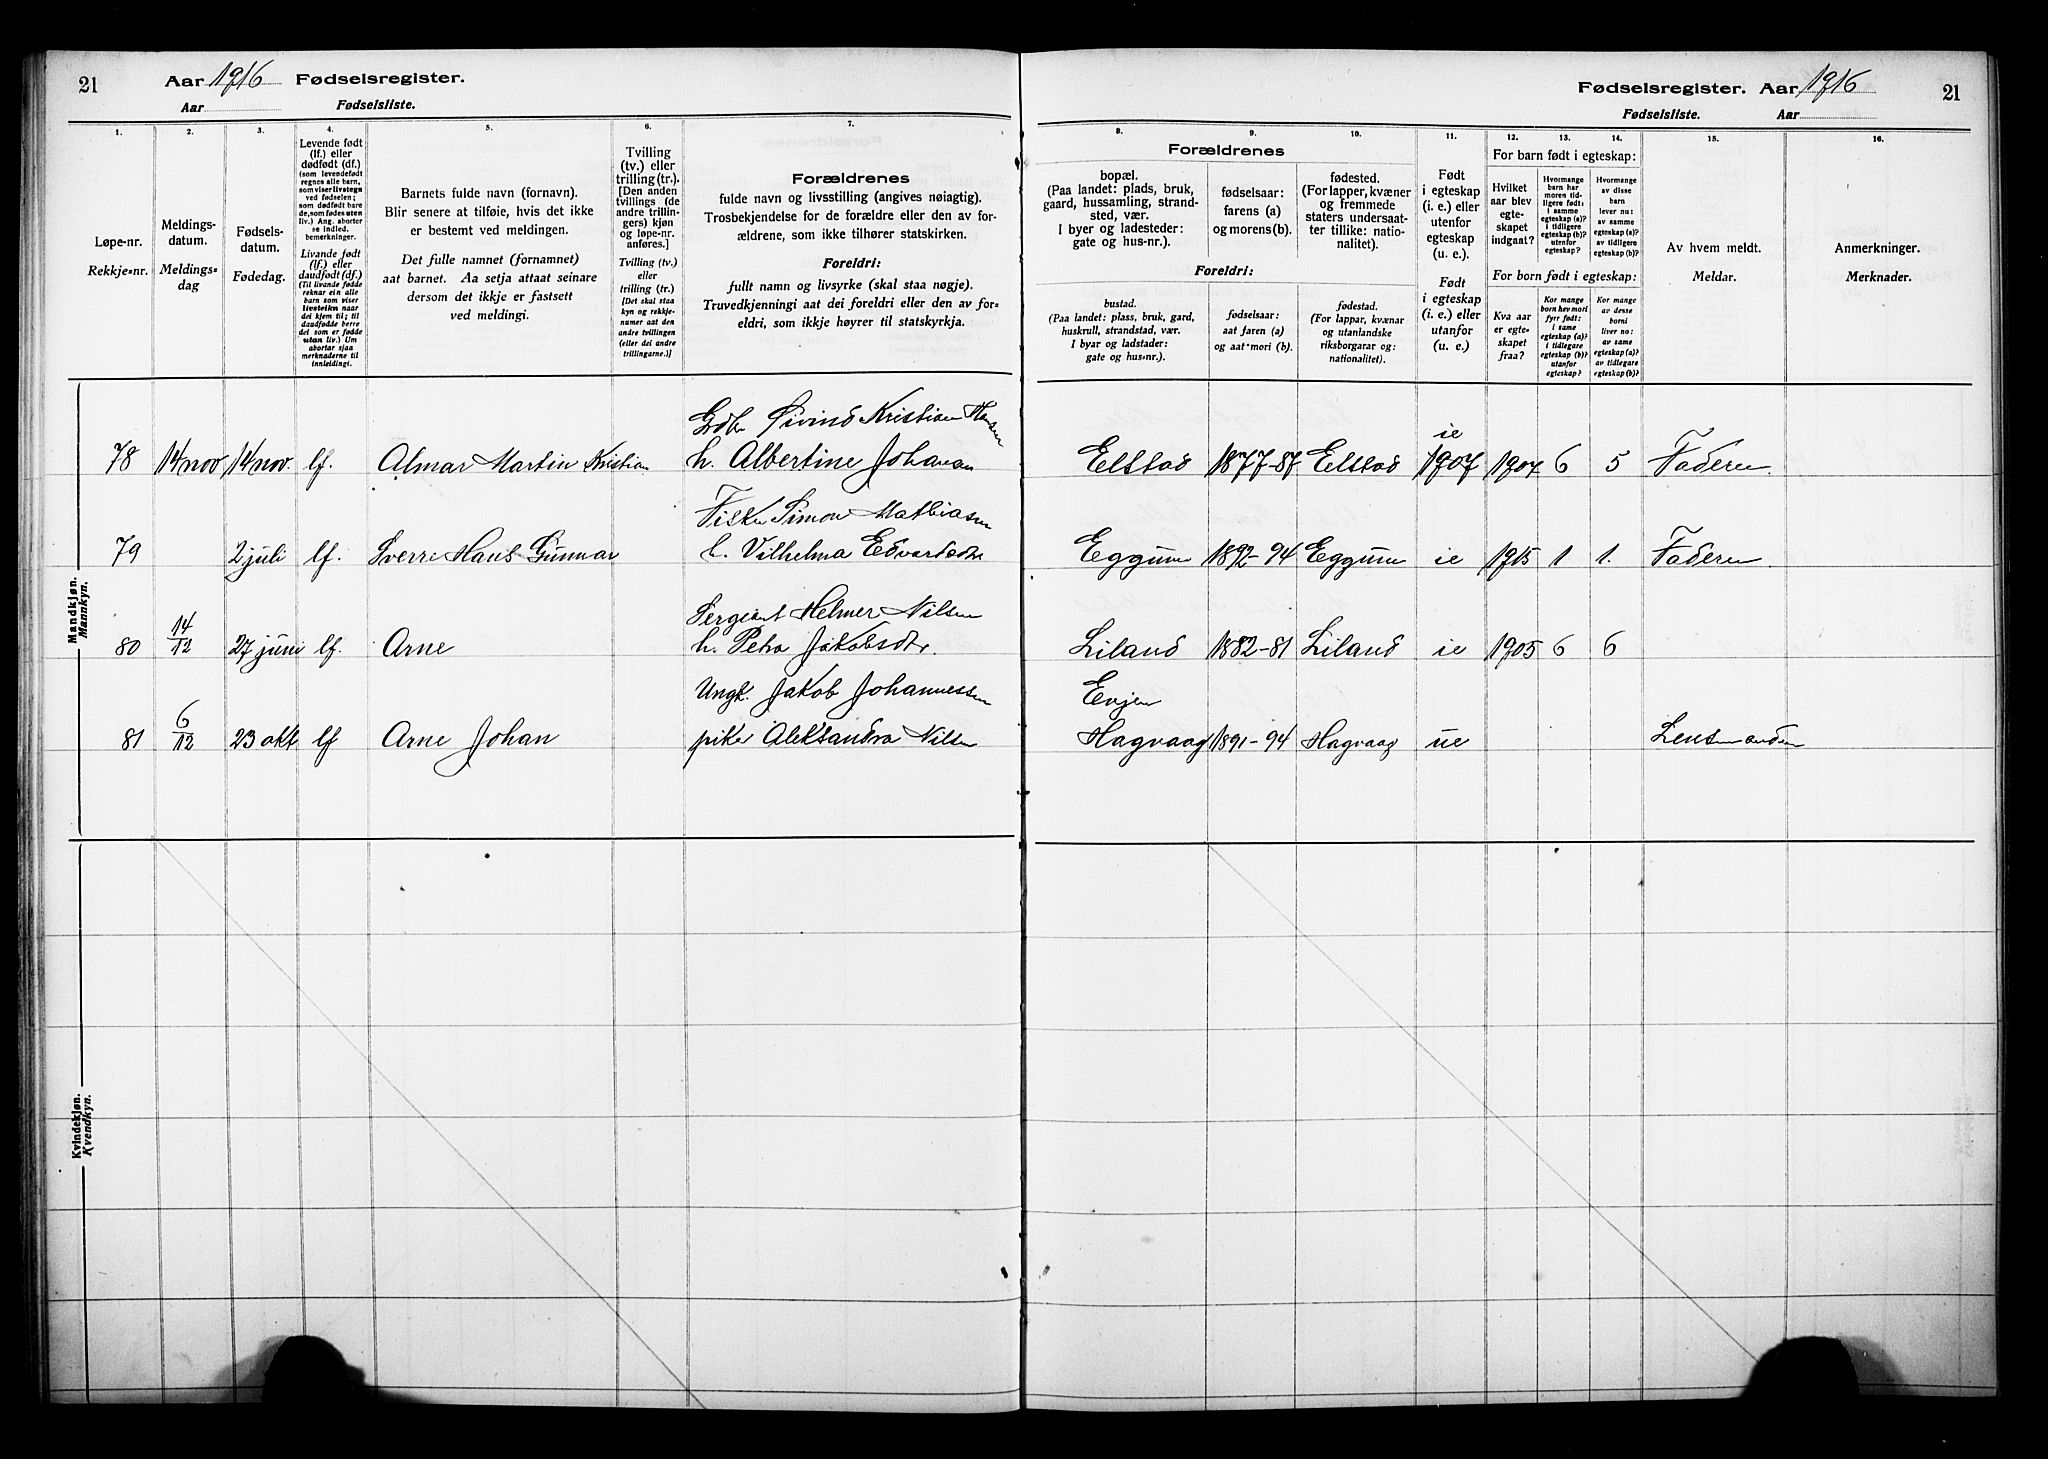 21 Aar 1916 Fødselsregister.
Aar Fødselsliste.
1. 2. 3. 4. 5. 6. 7.
Løpe-nr.
Rekkje-nr.
Meldings-
datum.
Meldings-
dag
Fødsels-
datum.
Fødedag.
Levende født
(lf.) eller
dødfødt (df.)
(som levendefødt
regnes alle barn,
som viser livstegn
ved fødselen;
som dødfødt bare
de, som fødes uten
liv.) Ang. aborter
se indled.
bemerkninger.
Livande født
(lf.) eller
daudfødt (df.)
(Til livande fødde
reknar ein alle
barn som viser
livsteikn naar
dei kjem til; til
daudfødde berre
dei som er fødde
utan liv.) Um
abortar sjaa
merknaderne til
innleidingi.
Barnets fulde navn (fornavn).
Blir senere at tilføie, hvis det ikke
er bestemt ved meldingen.
Det fulle namnet (fornamnet)
aat barnet. Aa setja attaat seinare
dersom det ikkje er fastsett
ved meldingi.
Tvilling
(tv.) eller
trilling (tr.).
[Den anden
tvillings (de
andre trillin-
gers) kjøn
og løpe-nr.
anføres.]
Tvilling (tv.)
eller
trilling (tr.)
[Det skal staa
kyn og rekkje-
numer aat den
andre tvillingen
(eller dei andre
trillingarne.)]
Forældrenes
fulde navn og livsstilling (angives nøiagtig).
Trosbekjendelse for de forældre eller den av for-
ældrene, som ikke tilhører statskirken.
Foreldri:
fullt namn og livsyrke (skal staa nøgje).
Truvedkjenningi aat dei foreldri eller den av for-
eldri, som ikkje høyrer til statskyrkja.
Mandkjøn.
Mannkyn.
Grdbr Øivind Kristian Hansen
78 14 nov 14 nov. lf. Almar Martin Kristian h. Albertine Johanan
Fisker Simon Mathiasen
79 2 juli lf. Sverre Hans Gunnar h. Vilhelma Edvardsdtr
Sergeant Helmer Nilsen
80 14/12 27 juni lf. Arne h. Petra Jakobsdtr.
Ungk. Jakob Johannessen
81 6/12 23 okt lf Arne Johan pike Aleksandra Nilsen
Kvindekjøn.
Kvendkyn.
Fødselsregister. Aar 1916 21
Fødselsliste. Aar
8. 9. 10. 11. 12. 13. 14. 15. 16.
Forældrenes
bopæl.
(Paa landet: plads, bruk,
gaard, hussamling, strand-
sted, vær.
I byer og ladesteder:
gate og hus-nr.).
fødselsaar:
farens (a)
og morens (b).
fødested.
(For lapper, kvæner
og fremmede
staters undersaat-
ter tillike: natio-
nalitet).
Foreldri:
bustad.
(Paa landet: plass, bruk, gard,
huskrull, strandstad, vær.
I byar og ladstader:
gate og hus-nr.).
fødselsaar:
aat faren (a)
og aat mori (b).
fødestad.
(For lappar, kvænar
og utanlandske
riksborgarar og:
nationalitet).
Født
i egteskap
(i. e.) eller
utenfor
egteskap
(u. e.).
Født
i egteskap
(i. e.) eller
utanfor
(u. e.).
For barn født i egteskap:
Hvilket
aar blev
egte-
skapet
indgaat?
Hvormange
barn har
moren tid-
ligere født:
i samme
egteskap (a)?
i tidligere
egteskap (b)?
utenfor
egteskap?
Hvormange
av disse
barn
lever nu:
av samme
egteskap (a)?
av tidligere
egteskap (b)?
For born født i egteskap:
Kva aar
er egte-
skapet
fraa?
Kor mange
born hev mori
fyrr født:
i same
egteskap (a)?
i tidlegare
egteskap (b)?
utanfor
egteskap?
Kor mange
av desse
borni
liver no:
av same
egteskap (a)?
av tidlegare
egteskap (b)?
Av hvem meldt.
Meldar.
Anmerkninger.
Merknader.
ie
Elstad 1877-87 Elstad 1907 1907 6 5 Faderen.
Eggum 1892-94 Eggum ie 1915 1 1. Faderen.
Liland 1882-81 Liland ie 1905 6 6
Evjen
Hagvaag 1891-94 Hagvaag ue Lensmanden